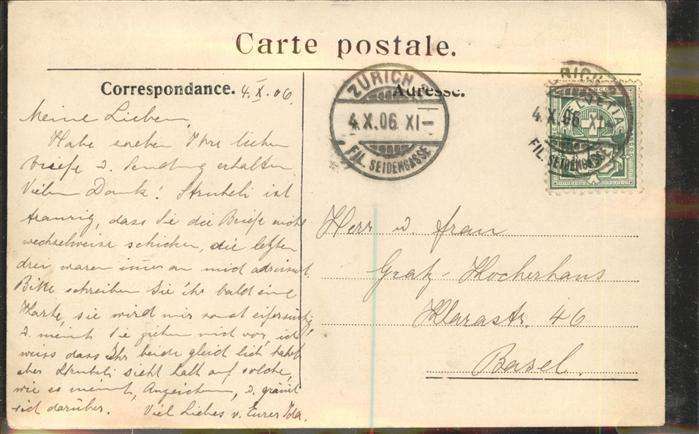 Carte postale.
Correspondance. 4.X.06.
Adresse.
ZÜRICH
4.X.06.XI—
FIL. SEIDENGASSE
ZÜRICH
4.X.06.XI
FIL. SEIDENGASSE
HELVETIA
Meine Lieben.
Habe soeben Ihre lieben
Briefe & Sendung erhalten
Vielen Dank! Strubeli ist
traurig, dass Sie die Briefe nicht
wechselweise schicken, die letzten
drei waren immer an mich adressiert.
Bitte schreiben Sie ihr bald eine
Karte, sie wird mir sonst eifersüchtig,
& meint Sie ziehen mich vor, ich
weiss dass Ihr beide gleich lieb habt
aber Strubeli sieht halt auf solche,
wie es meint, Anzeichen, &
sich darüber. Viel Liebes v. Eurer Ida.
Herr u frau
Graf-Hocherhans
Klarastr. 46
Basel.